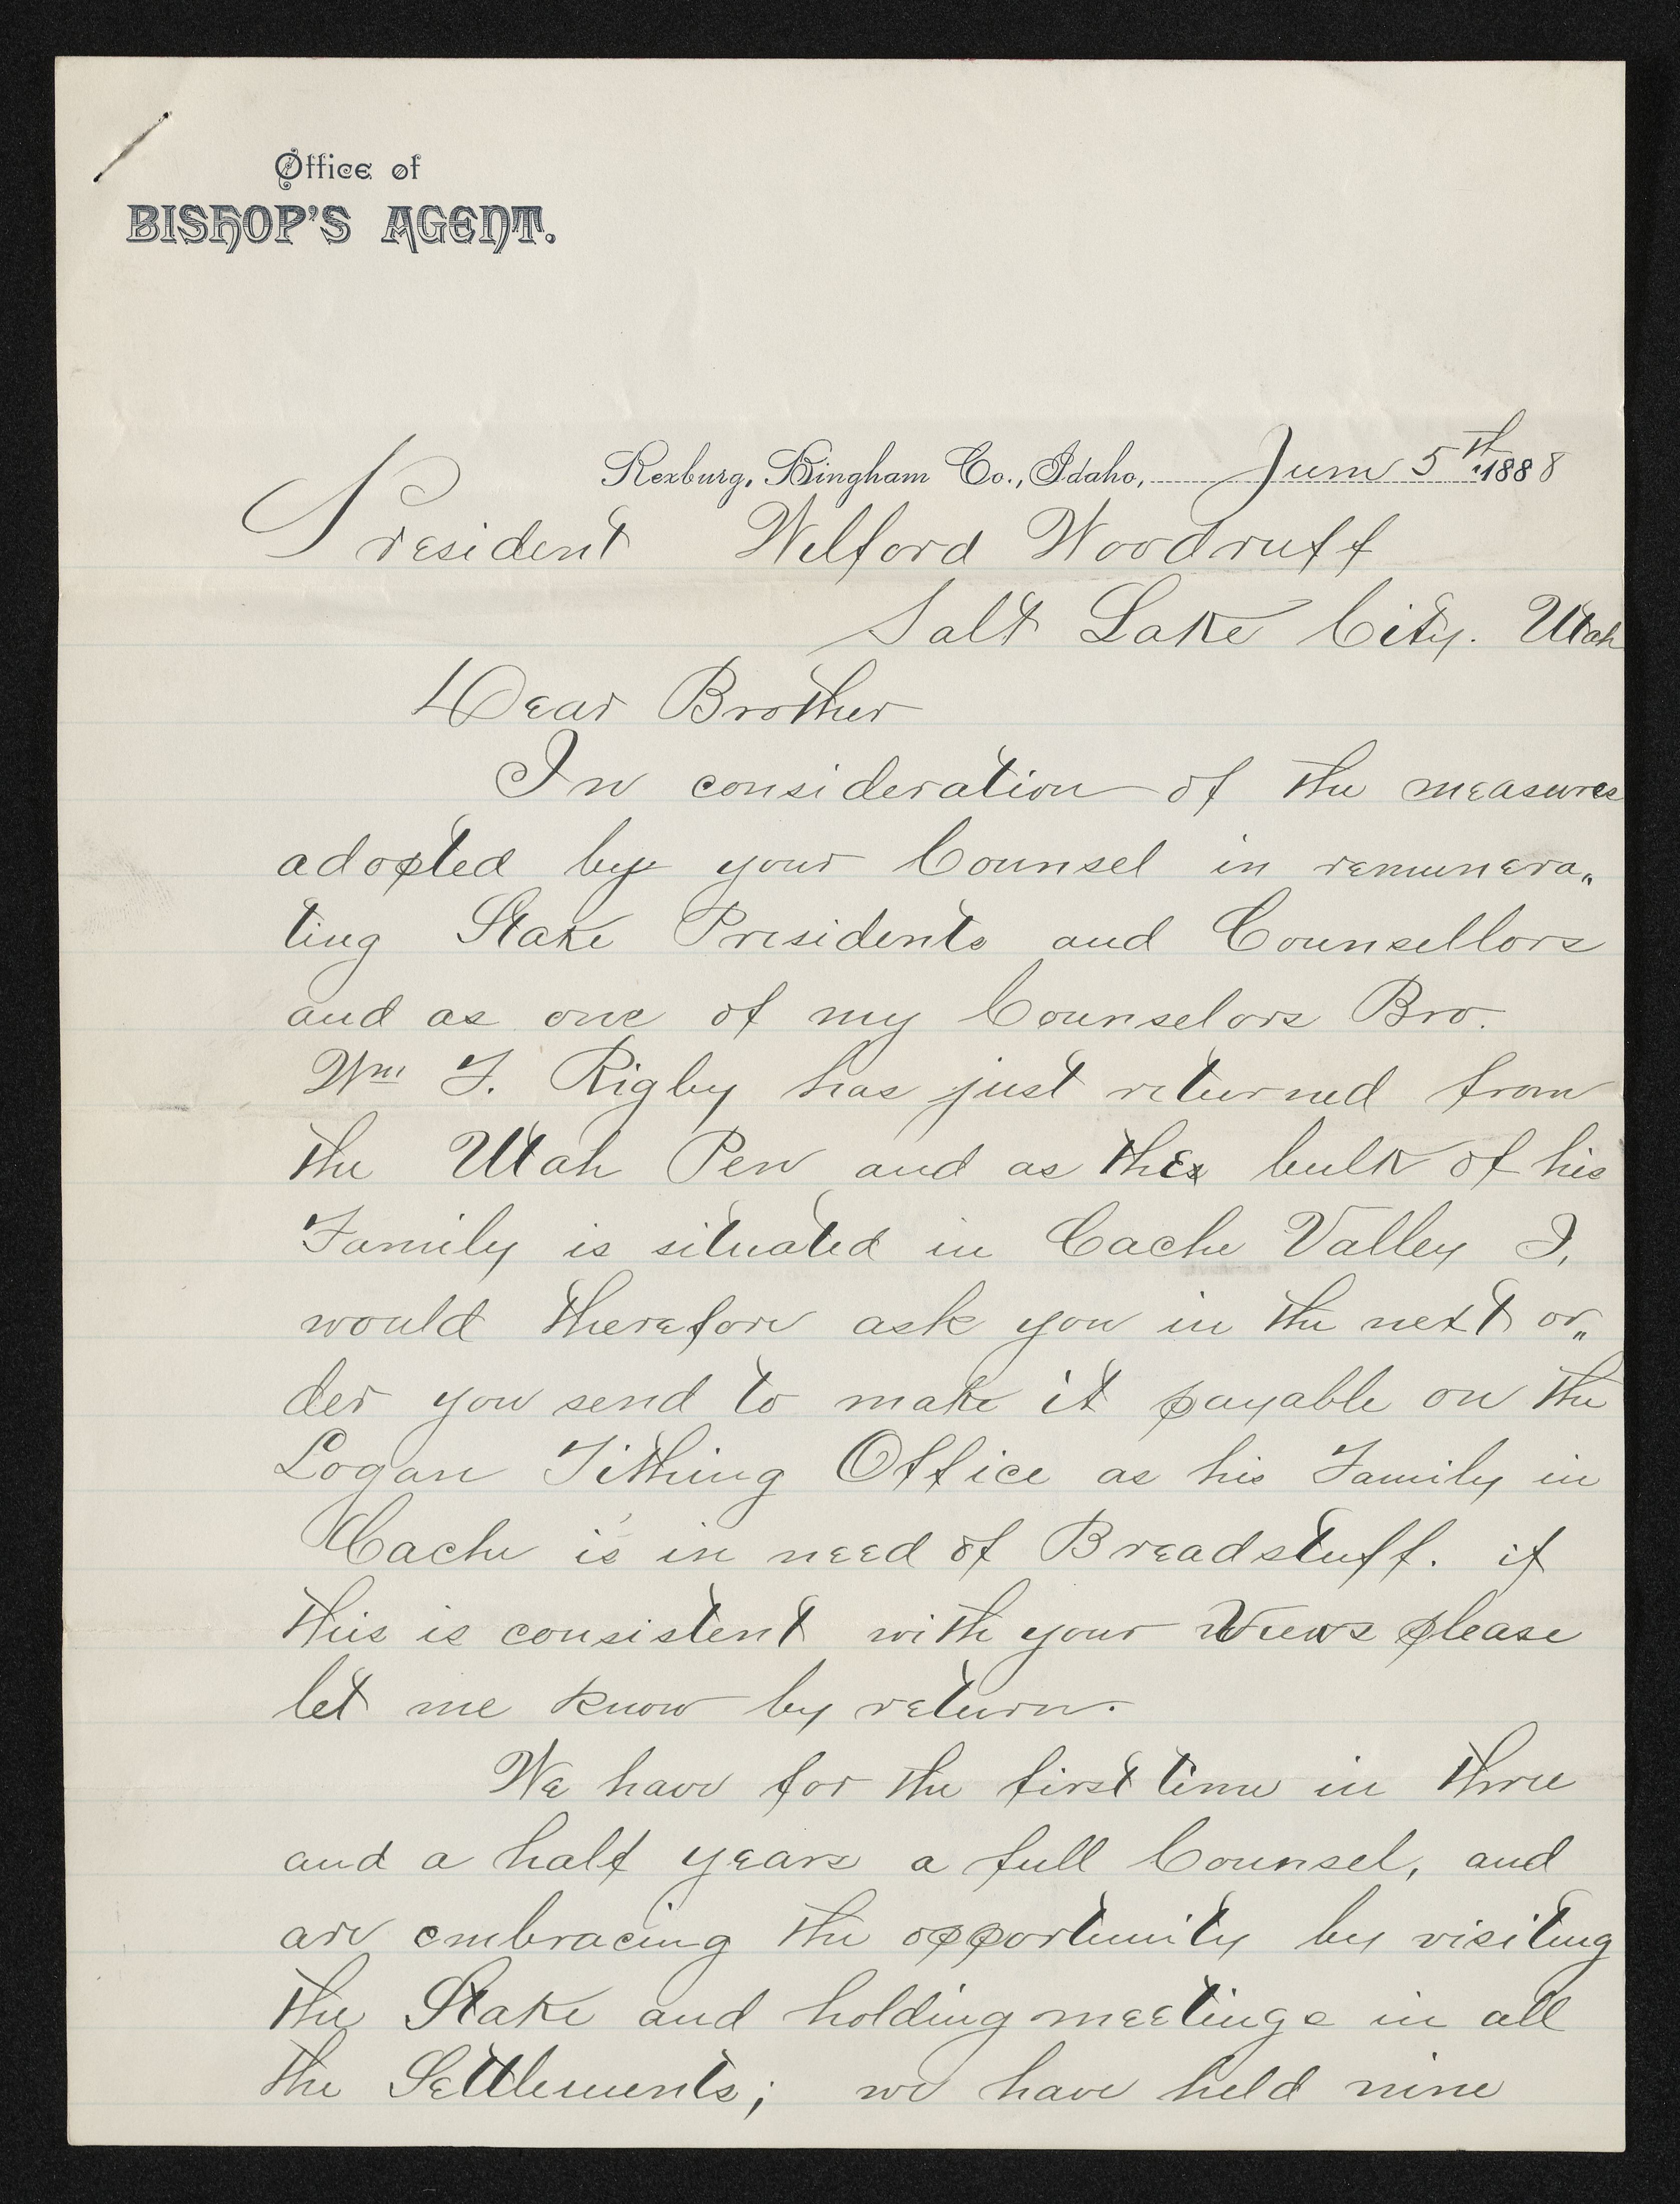 Office of
BISHOP'S AGENT.
Rexburg, Bingham Co., Idaho, June 5th 1888
President Welford Woodruff
Salt Lake City. Utah
Dear Brother
In consideration of the measures
adopted by your Counsel in remunera„
ting Stake Presidents and Counsellors
and as one of my Counselors Bro.
Wm F. Rigby has just returned from
the Utah Pen and as the bulk of his
Family is situated in Cache Valley I,
would therefore ask you in the next or„
der you send to make it payable on the
Logan Tithing Office as his Family in
Cache is in need of Breadstuff. if
this is consistent with your Views please
let me know by return.
We have for the first time in three
and a half years a full Counsel, and
are embracing the opportunity by visiting
the Stake and holding meetings in all
the Settlements; we have held nine